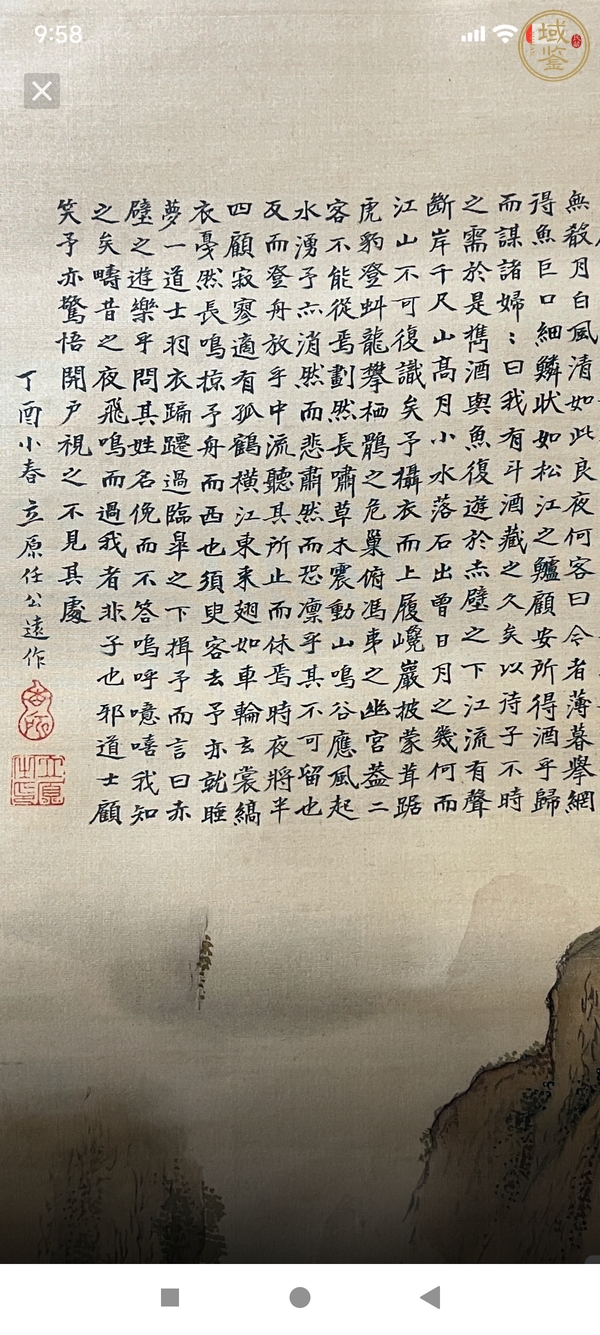 9:58
域鉴
無殽月白風清如此良夜何客曰今者薄暮舉網
得魚巨口細鱗狀如松江之鱸顧安所得酒乎歸
而謀諸婦:曰我有斗酒藏之久矣以待子不時
之需於是携酒與魚復遊於赤壁之下江流有聲
斷岸千尺山髙月小水落石出曾日月之幾何而
江山不可復識矣予攝衣而上履巉巖披蒙茸踞
虎豹登虯龍攀栖鶻之危巢俯馮夷之幽宮葢二
客不能從焉劃然長嘯草木震動山鳴谷應風起
水湧予亦消然而悲肅然而恐凛乎其不可留也
反而登舟放乎中流聽其所止而休焉時夜將半
四顧寂寥適有孤鶴橫江東来翅如車輪玄裳縞
衣戛然長鳴掠予舟而西也須臾客去予亦就睡
夢一道士羽衣蹁躚過臨皐之下揖予而言曰赤
壁之遊樂乎問其姓名俛而不答嗚呼噫嘻我知
之矣疇昔之夜飛鳴而過我者非子也邪道士顧
笑予亦驚悟開戶視之不見其處
丁酉小春立原任公遠作